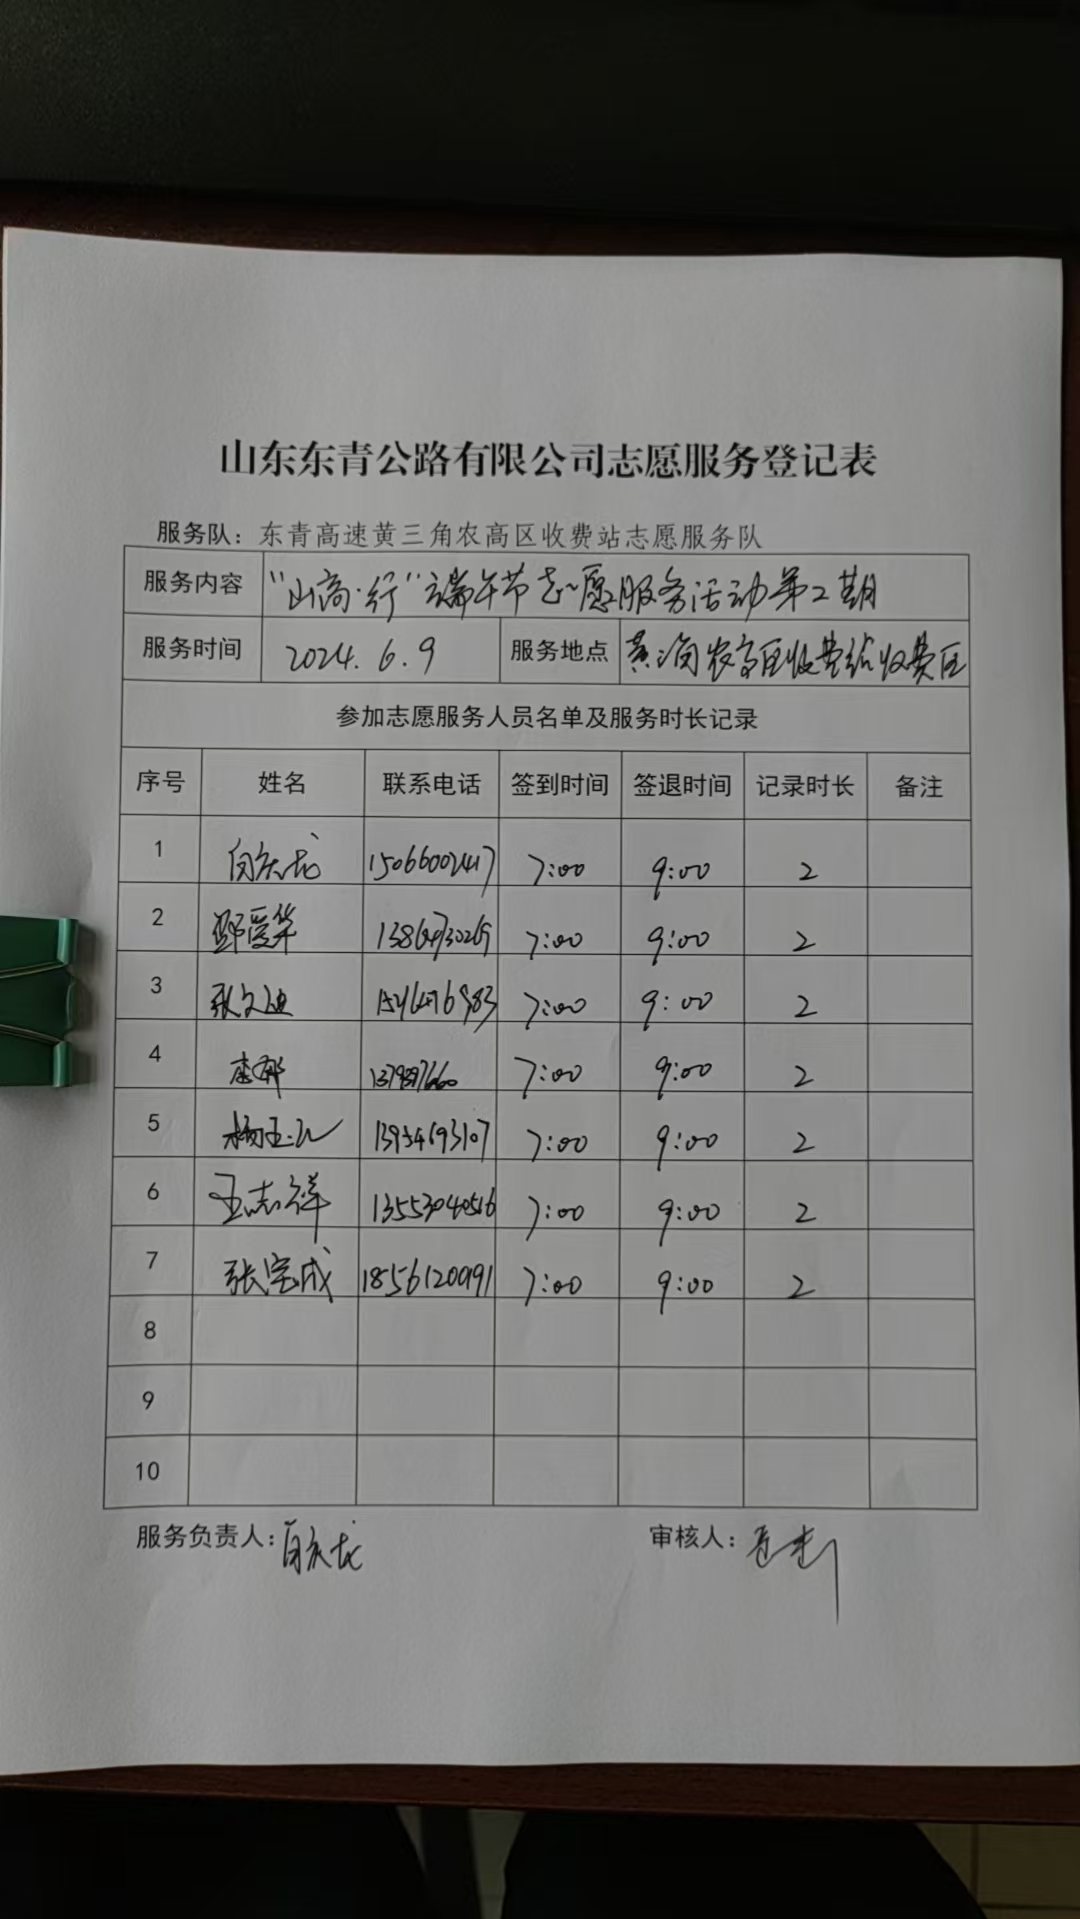 山东东青公路有限公司志愿服务登记表
服务队：东青高速黄三角农高区收费站志愿服务队
服务内容 “山高·行”端午节志愿服务活动第2期
服务时间 2024.6.9 服务地点 黄三角农高区收费站收费区
参加志愿服务人员名单及服务时长记录
序号 姓名 联系电话 签到时间 签退时间 记录时长 备注
1 15066002417 7:00 9:00 2
2 郭爱华 7:00 9:00 2
3 张文迪 7:00 9:00 2
4 7:00 9:00 2
5 13954693107 7:00 9:00 2
6 王志祥 13553040516 7:00 9:00 2
7 张宝成 18561200991 7:00 9:00 2
8
9
10
服务负责人： 审核人：